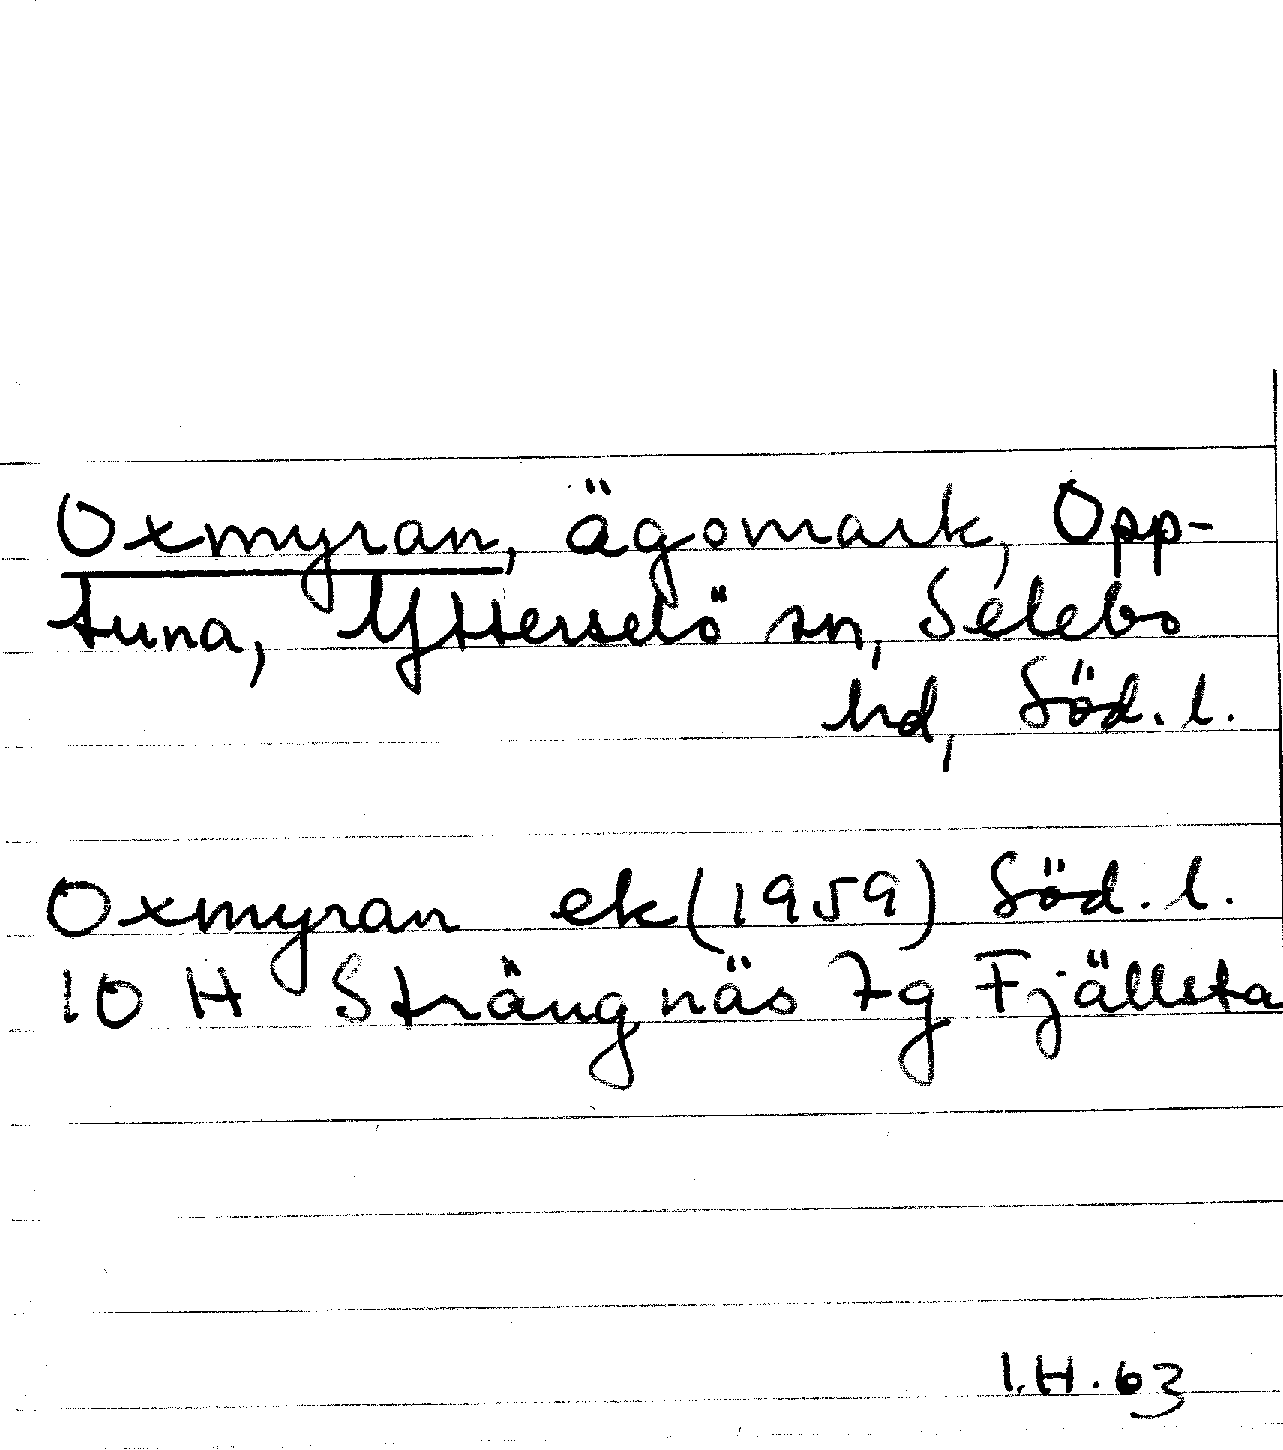 Oxmyran, ägomark, Opp-
tuna, Ytterselö sn, Selebo
hd, Söd. l.
Oxmyran ek (1959) Söd. l.
10 H Strängnäs 7g Fjällsta
I.H. 63